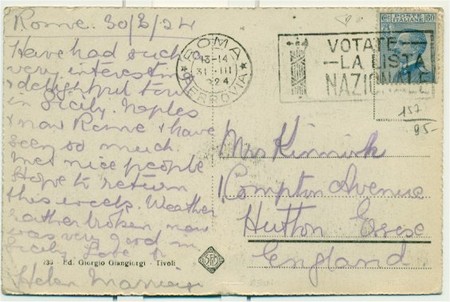 Rome. 30/3/24
Have had such
very interesting
& delightful tour
in Sicily. Naples
& now Rome & have
seen so much.
Met nice people
Hope to return
this week. Weather
rather broken now
was very good in
Sicily. Love fr
Helen
233 - Ed. Giorgio Giangiorgi - Tivoli
ROMA
13-14
31 III
924
FERROVIA
VOTATE
LA LISTA
NAZIONALE
152
95-
Mrs Kinnirk
Compton Avenue
Hutton Essex
England